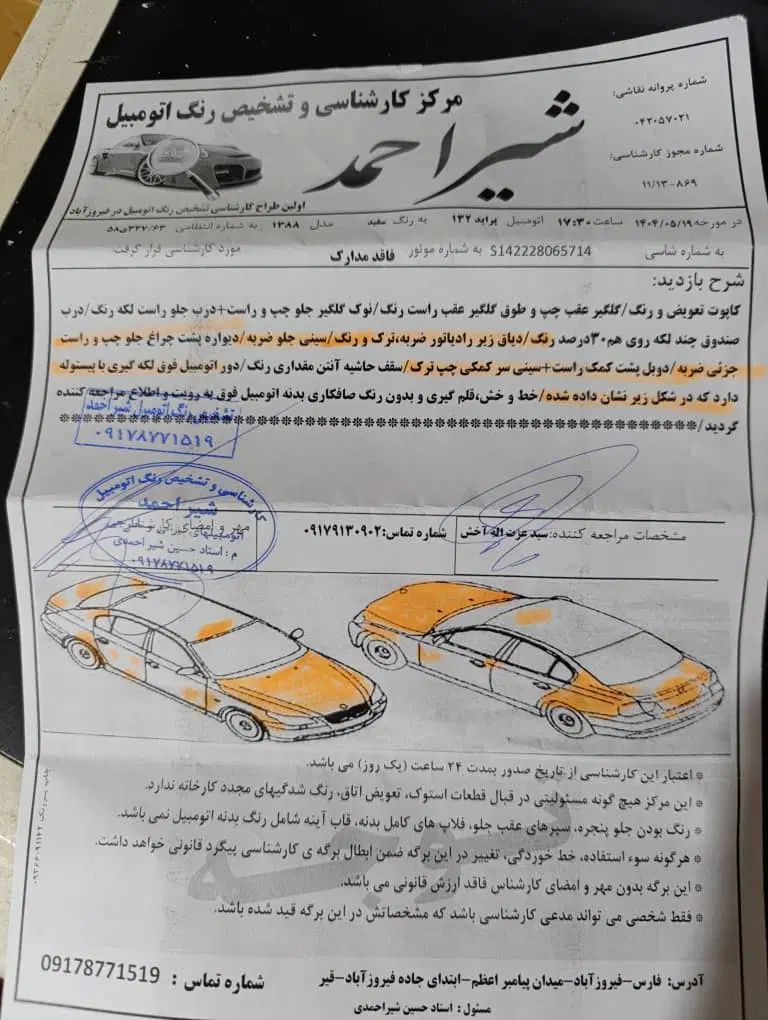 مرکز کارشناسی و تشخیص رنگ اتومبیل
شیراحمد
اولین طراح کارشناسی تشخیص رنگ اتومبیل در فیروزآباد
شماره پروانه نقاشی:
۰۴۲۰۵۷۰۲۱
شماره مجوز کارشناسی:
۱۱/۱۳-۸۶۹
در مورخه ۱۴۰۴/۰۵/۱۹ ساعت ۱۷:۳۰ اتومبیل پراید ۱۳۲ به رنگ سفید مدل ۱۳۸۸ به شماره انتظامی
به شماره شاسی S142228065714 به شماره موتور فاقد مدارک مورد کارشناسی قرار گرفت.
شرح بازدید:
کاپوت تعویض و رنگ/گلگیر عقب چپ و طوق گلگیر عقب راست رنگ/نوک گلگیر جلو چپ و راست+درب جلو راست لکه رنگ/درب
صندوق چند لکه روی هم۳۰درصد رنگ/دیاق زیر رادیاتور ضربه،ترک و رنگ/سینی جلو ضربه/دیواره پشت چراغ جلو چپ و راست
جزئی ضربه/دوبل پشت کمک راست+سینی سر کمکی چپ ترک/سقف حاشیه آنتن مقداری رنگ/دور اتومبیل فوق لکه گیری با پیستوله
دارد که در شکل زیر نشان داده شده/خط و خش،قلم گیری و بدون رنگ صافکاری بدنه اتومبیل فوق به رویت و اطلاع مراجعه کننده
گردید/********************
تشخیص رنگ اتومبیل شیراحمد
۰۹۱۷۸۷۷۱۵۱۹
کارشناسی و تشخیص رنگ اتومبیل
شیراحمد
م : استاد حسین شیراحمدی
۰۹۱۷۸۷۷۱۵۱۹
مشخصات مراجعه کننده:سید عزت اله آخش شماره تماس:۰۹۱۷۹۱۳۰۹۰۲ مهر و امضای کارشناس
* اعتبار این کارشناسی از تاریخ صدور بمدت ۲۴ ساعت (یک روز) می باشد.
* این مرکز هیچ گونه مسئولیتی در قبال قطعات استوک، تعویض اتاق، رنگ شدگیهای مجدد کارخانه ندارد.
* رنگ بودن جلو پنجره، سپرهای عقب جلو، فلاپ های کامل بدنه، قاب آینه شامل رنگ بدنه اتومبیل نمی باشد.
* هرگونه سوء استفاده، خط خوردگی، تغییر در این برگه ضمن ابطال برگه ی کارشناسی پیگرد قانونی خواهد داشت.
* این برگه بدون مهر و امضای کارشناس فاقد ارزش قانونی می باشد.
* فقط شخصی می تواند مدعی کارشناسی باشد که مشخصاتش در این برگه قید شده باشد.
توجه
آدرس: فارس-فیروزآباد-میدان پیامبر اعظم-ابتدای جاده فیروزآباد-قیر
شماره تماس : 09178771519
مسئول : استاد حسین شیراحمدی